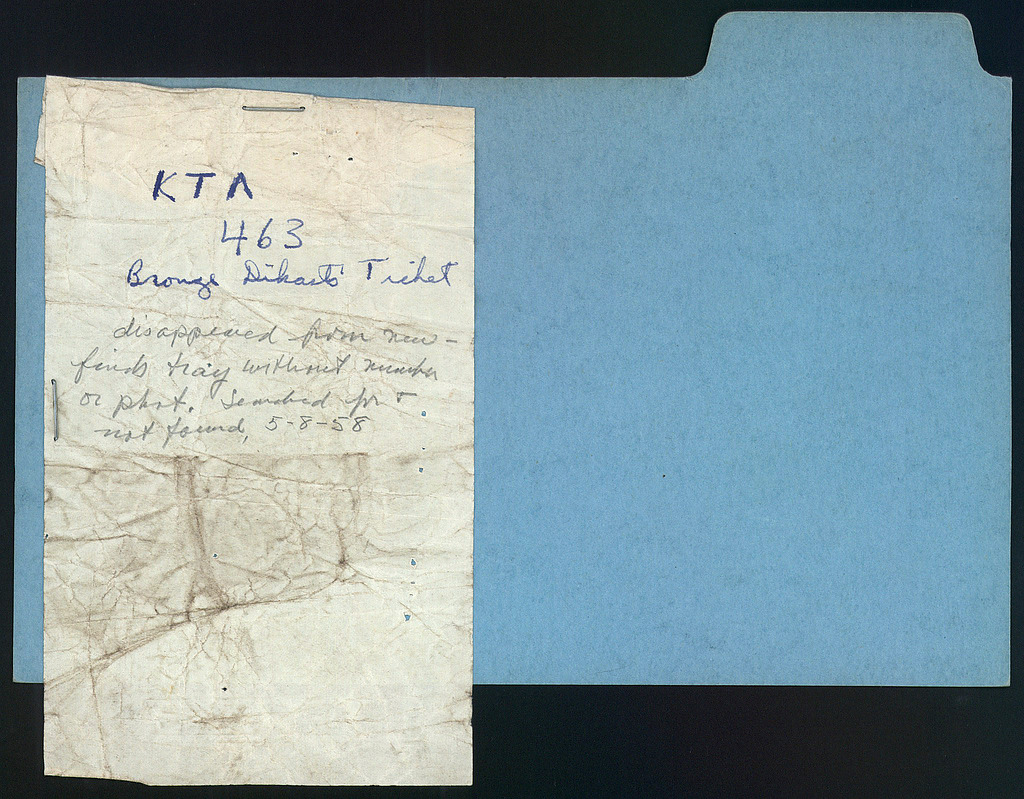 KTΛ
463
Bronze Dikasts' Ticket
disappeared from new-
finds tray without number
or phot. Searched for &
not found, 5-8-58